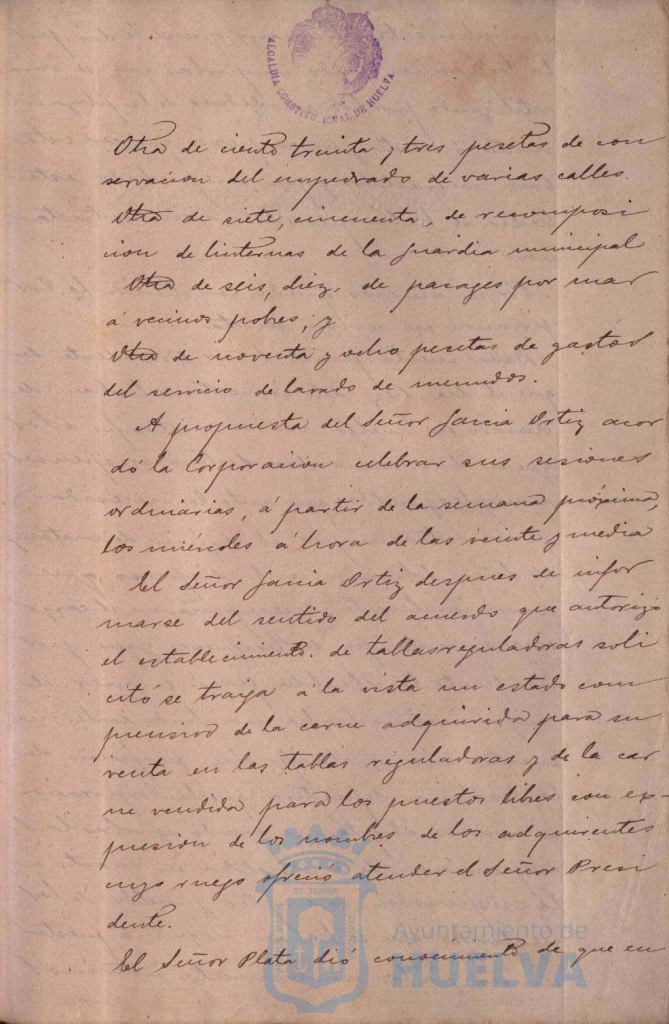 ALCALDIA CONSTITUCIONAL DE HUELVA
Otra de ciento treinta y tres pesetas de con
servacion del empedrado de varias calles.
Otra de siete, cincuenta, de recomposi
cion de linternas de la guardia municipal
Otra de seis, diez, de pasages por mar
á vecinos pobres; y
Otra de noventa y ocho pesetas de gastos
del servicio de lavado de menudos.
A propuesta del Señor Garcia Ortiz acor
dó la Corporacion celebrar sus sesiones
ordinárias, á partir de la semana próxima,
los miércoles á hora de las veinte y media
El Señor Garcia Ortiz despues de infor
marse del sentido del acuerdo que autorizó
el establecimiento. de tablas reguladoras soli
citó se traiga á la vista un estado com
prensivo de la carne adquirida para su
venta en las tablas reguladoras y de la car
ne vendida para los puestos libres con ex-
presion de los nombres de los adquirentes
cuyo ruego ofreció atender el Señor Presi
dente.
El Señor Plata dió conocimiento de que en
Ayuntamiento de
HUELVA